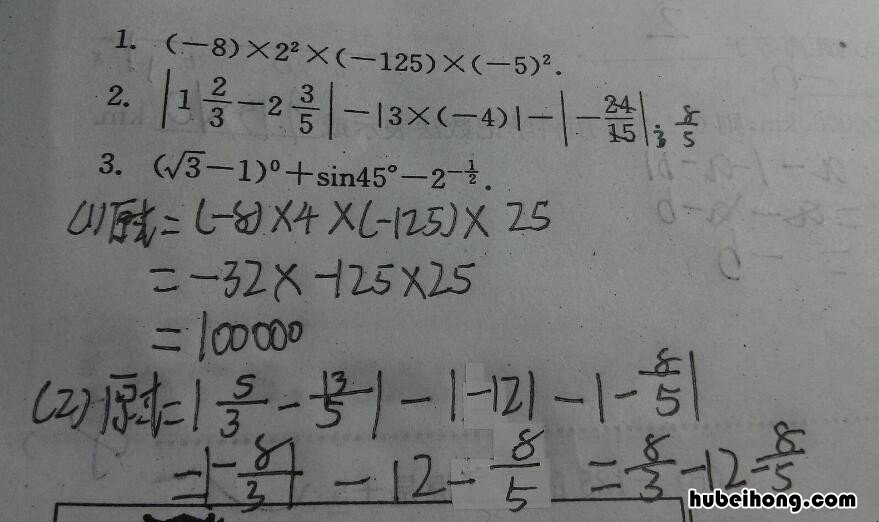 1. (−8)×2²×(−125)×(−5)².
2. |1 2/3 − 2 3/5| − |3×(−4)| − |− 24/15|; 8/5 3
3. (√3−1)⁰+sin45°−2^(−1/2).
(1)原式=(-8)×4×(-125)×25
=-32×-125×25
=100000
(2)原式=|5/3 - 13/5| - |-12| - |- 8/5|
=|- 8/3| - 12 - 8/5 = 8/3 - 12 - 8/5
hubeihong.com